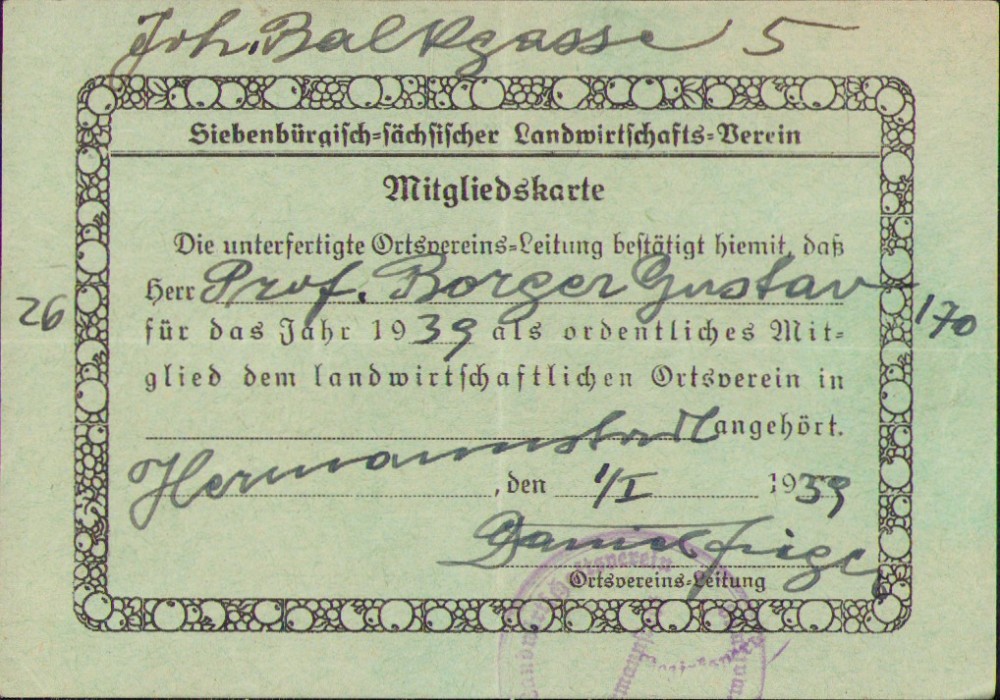 Joh. Balkgasse 5
Siebenbürgisch-sächsischer Landwirtschafts-Verein
Mitgliedskarte
Die unterfertigte Ortsvereins-Leitung bestätigt hiemit, daß
Herr Prof. Borger Gustav
26
170
für das Jahr 1939 als ordentliches Mit-
glied dem landwirtschaftlichen Ortsverein in
angehört.
Hermannstadt, den 1/I 1939
Daniel
Ortsvereins-Leitung